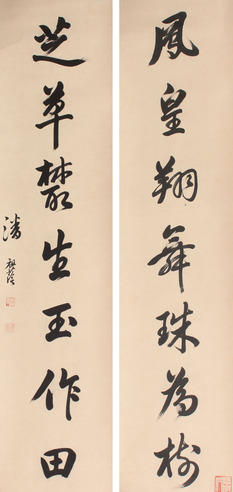 鳳皇翔舞珠為樹
芝草叢生玉作田
潘